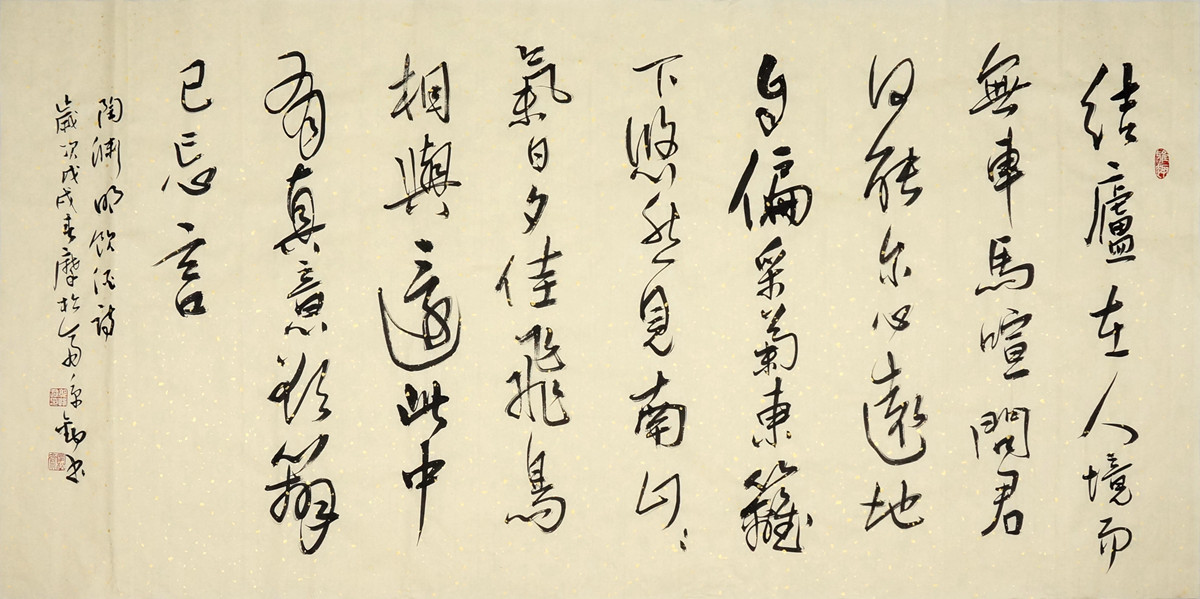 結廬在人境而
無車馬喧問君
何能尔心遠地
自偏采菊東籬
下悠然見南山〻
氣日夕佳飛鳥
相與還此中
有真意欲辨
已忘言
陶淵明飲酒詩
歲次戊戌春於京書